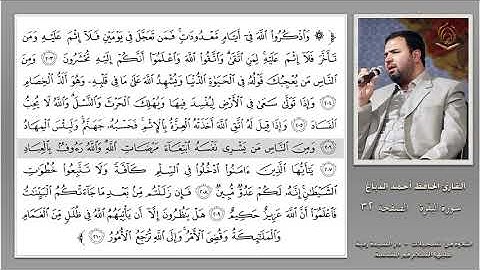 ۞ وَاذْكُرُوا اللَّهَ فِي أَيَّامٍ مَعْدُودَاتٍ فَمَن تَعَجَّلَ فِي يَوْمَيْنِ فَلَا إِثْمَ عَلَيْهِ وَمَن
تَأَخَّرَ فَلَا إِثْمَ عَلَيْهِ لِمَنِ اتَّقَىٰ وَاتَّقُوا اللَّهَ وَاعْلَمُوا أَنَّكُمْ إِلَيْهِ تُحْشَرُونَ ٢٠٣ وَمِنَ
النَّاسِ مَن يُعْجِبُكَ قَوْلُهُ فِي الْحَيَوٰةِ الدُّنْيَا وَيُشْهِدُ اللَّهَ عَلَىٰ مَا فِي قَلْبِهِ وَهُوَ أَلَدُّ الْخِصَامِ
٢٠٤ وَإِذَا تَوَلَّىٰ سَعَىٰ فِي الْأَرْضِ لِيُفْسِدَ فِيهَا وَيُهْلِكَ الْحَرْثَ وَالنَّسْلَ وَاللَّهُ لَا يُحِبُّ
الْفَسَادَ ٢٠٥ وَإِذَا قِيلَ لَهُ اتَّقِ اللَّهَ أَخَذَتْهُ الْعِزَّةُ بِالْإِثْمِ فَحَسْبُهُ جَهَنَّمُ وَلَبِئْسَ الْمِهَادُ
٢٠٦ وَمِنَ النَّاسِ مَن يَشْرِي نَفْسَهُ ابْتِغَاءَ مَرْضَاتِ اللَّهِ وَاللَّهُ رَءُوفٌ بِالْعِبَادِ
٢٠٧ يَٰأَيُّهَا الَّذِينَ ءَامَنُوا ادْخُلُوا فِي السِّلْمِ كَافَّةً وَلَا تَتَّبِعُوا خُطُوَٰتِ
الشَّيْطَٰنِ إِنَّهُ لَكُمْ عَدُوٌّ مُّبِينٌ ٢٠٨ فَإِن زَلَلْتُم مِّن بَعْدِ مَا جَاءَتْكُمُ الْبَيِّنَٰتُ
فَاعْلَمُوا أَنَّ اللَّهَ عَزِيزٌ حَكِيمٌ ٢٠٩ هَلْ يَنظُرُونَ إِلَّا أَن يَأْتِيَهُمُ اللَّهُ فِي ظُلَلٍ مِّنَ الْغَمَامِ
وَالْمَلَٰئِكَةُ وَقُضِيَ الْأَمْرُ وَإِلَى اللَّهِ تُرْجَعُ الْأُمُورُ ٢١٠
القارئ الحافظ أحمد الدباغ
سورة البقرة الصفحة ٣٢